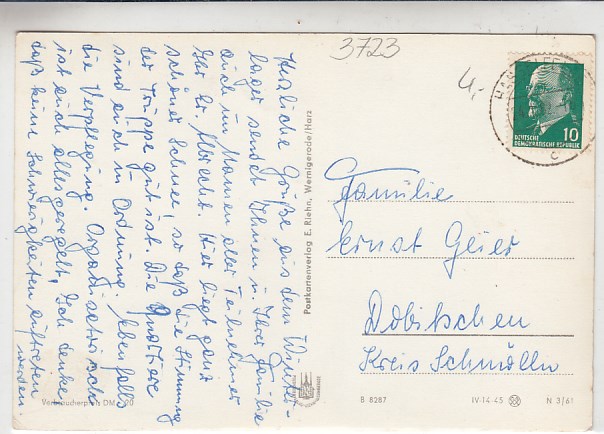 3723
Herzliche Grüße aus dem Winter-
lager sendet Ihnen u. Ihrer Familie
auch im Namen aller Teilnehmer
Ihr Dr. Albrecht. Hier liegt ganz
schöner Schnee, so daß die Stimmung
der Truppe gut ist. Die Quartiere
sind auch in Ordnung. Ebenfalls
die Verpflegung. Organisatorisch
ist auch alles geregelt. Ich denke,
daß keine Schwierigkeiten auftreten
werden.
Postkartenverlag E. Riehn, Wernigerode/Harz
10
DEUTSCHE
DEMOKRATISCHE REPUBLIK
c
Familie
Ernst Geier
Dobitschen
Kreis Schmölln
Verbraucherpreis DM 0,20
B 8287
IV-14-45
N 3/61